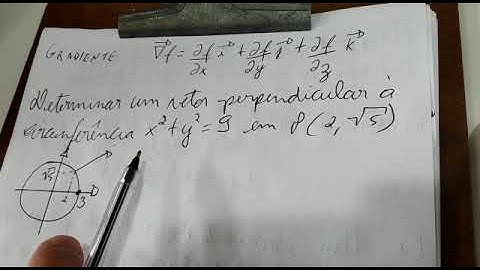 GRADIENTE ∇⃗f = ∂f/∂x i⃗ + ∂f/∂y j⃗ + ∂f/∂z k⃗
Determinar um vetor perpendicular à
circunferência x² + y² = 9 em P(2, √5)
√5
2 3